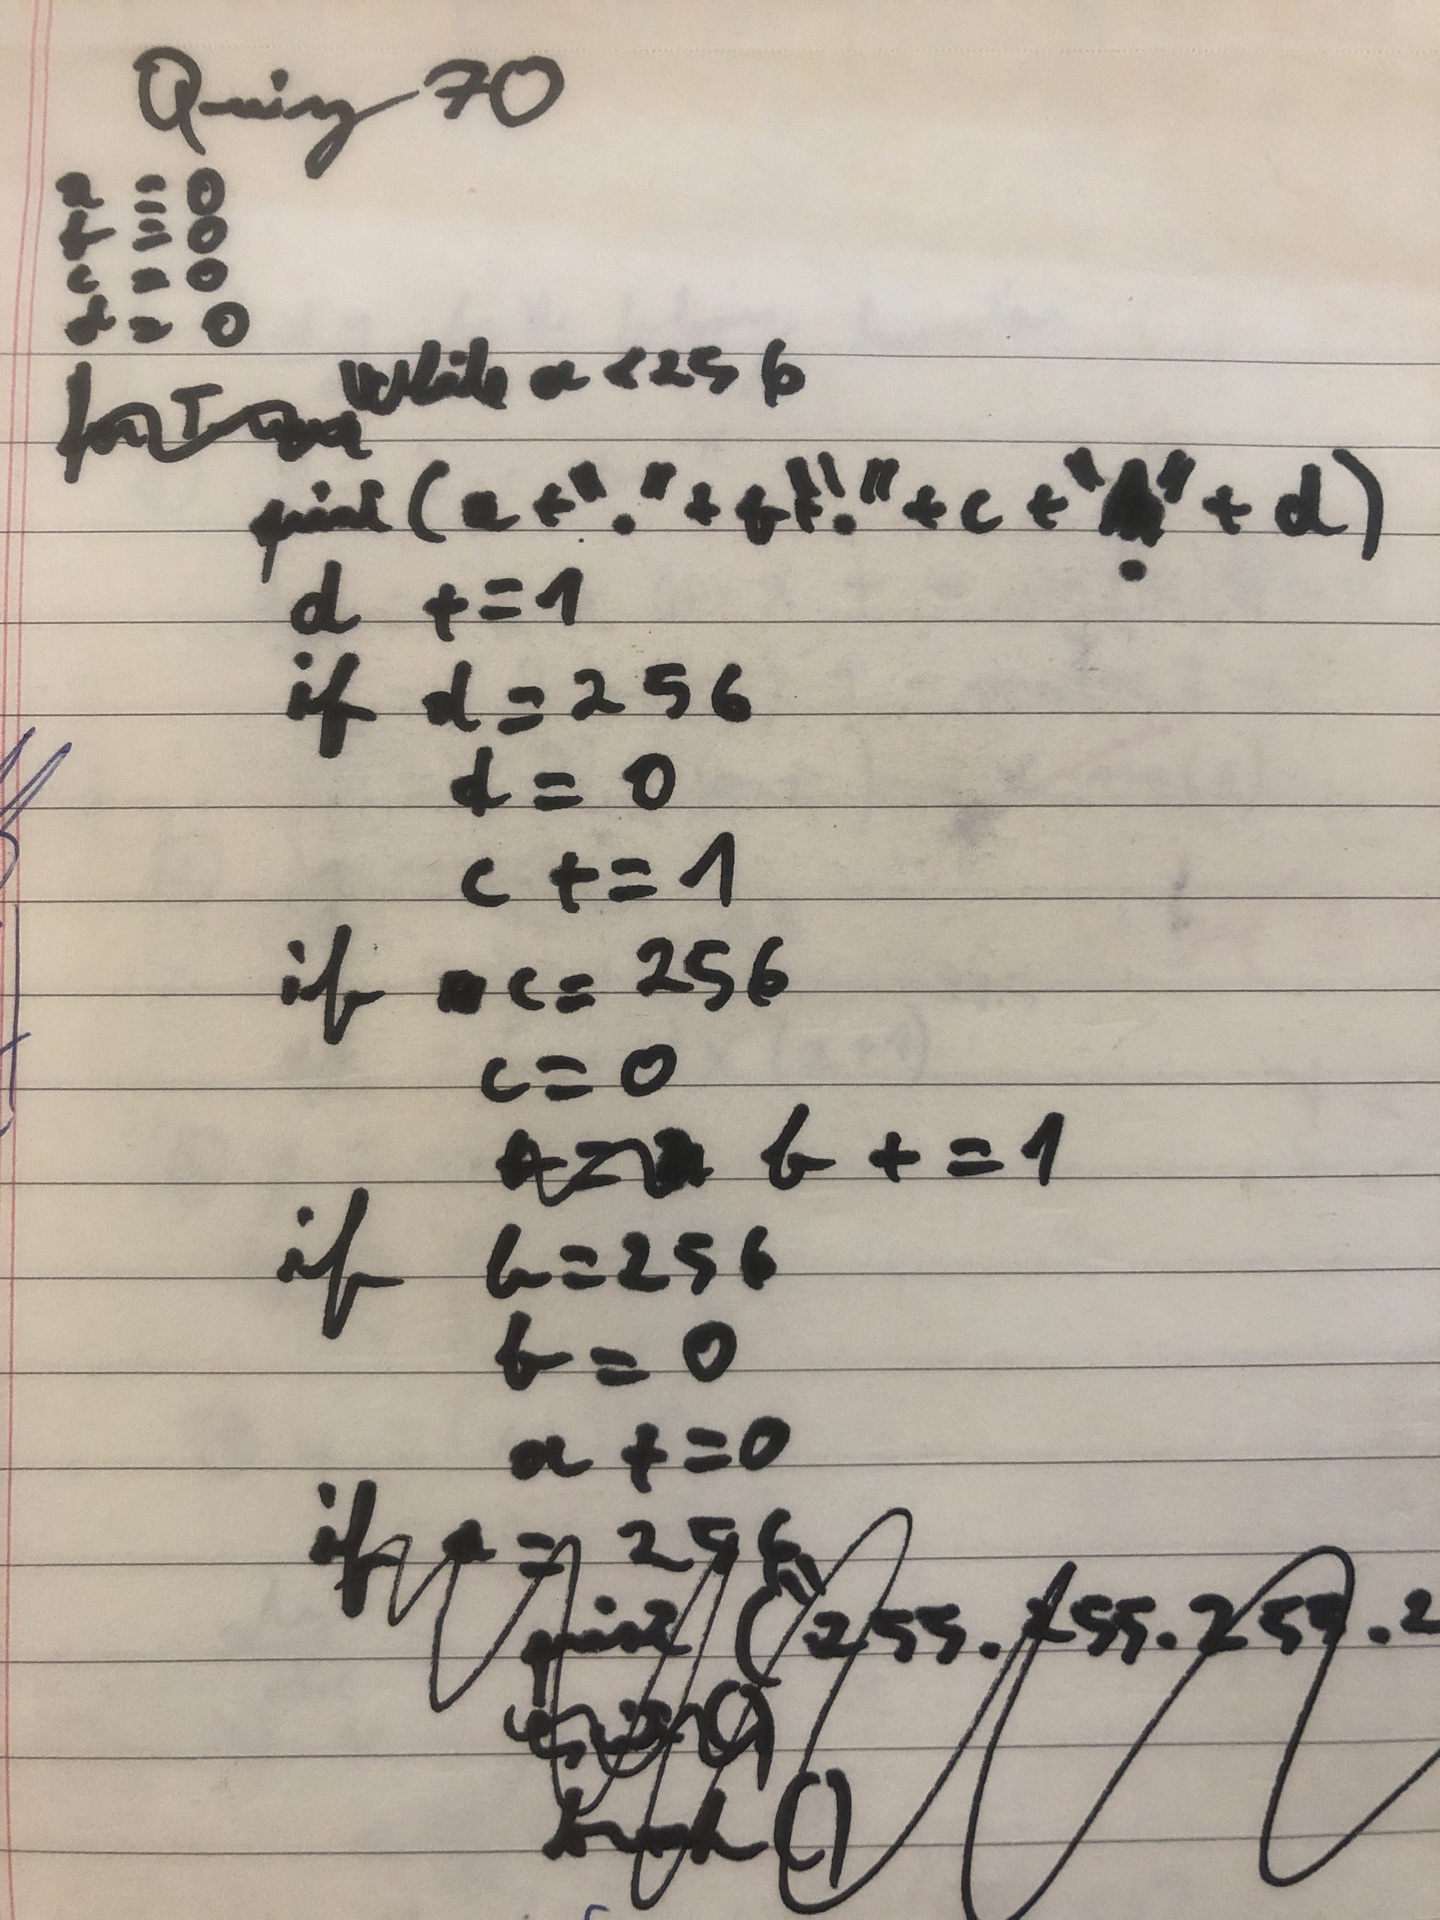 Quiz 70
a = 0
b = 0
c = 0
d = 0
while a < 256
print (a + "." + b + "." + c + "." + d)
d += 1
if d = 256
d = 0
c += 1
if c = 256
c = 0
b += 1
if b = 256
b = 0
a += 0
if a = 256
print ("255.255.255.2
break ()